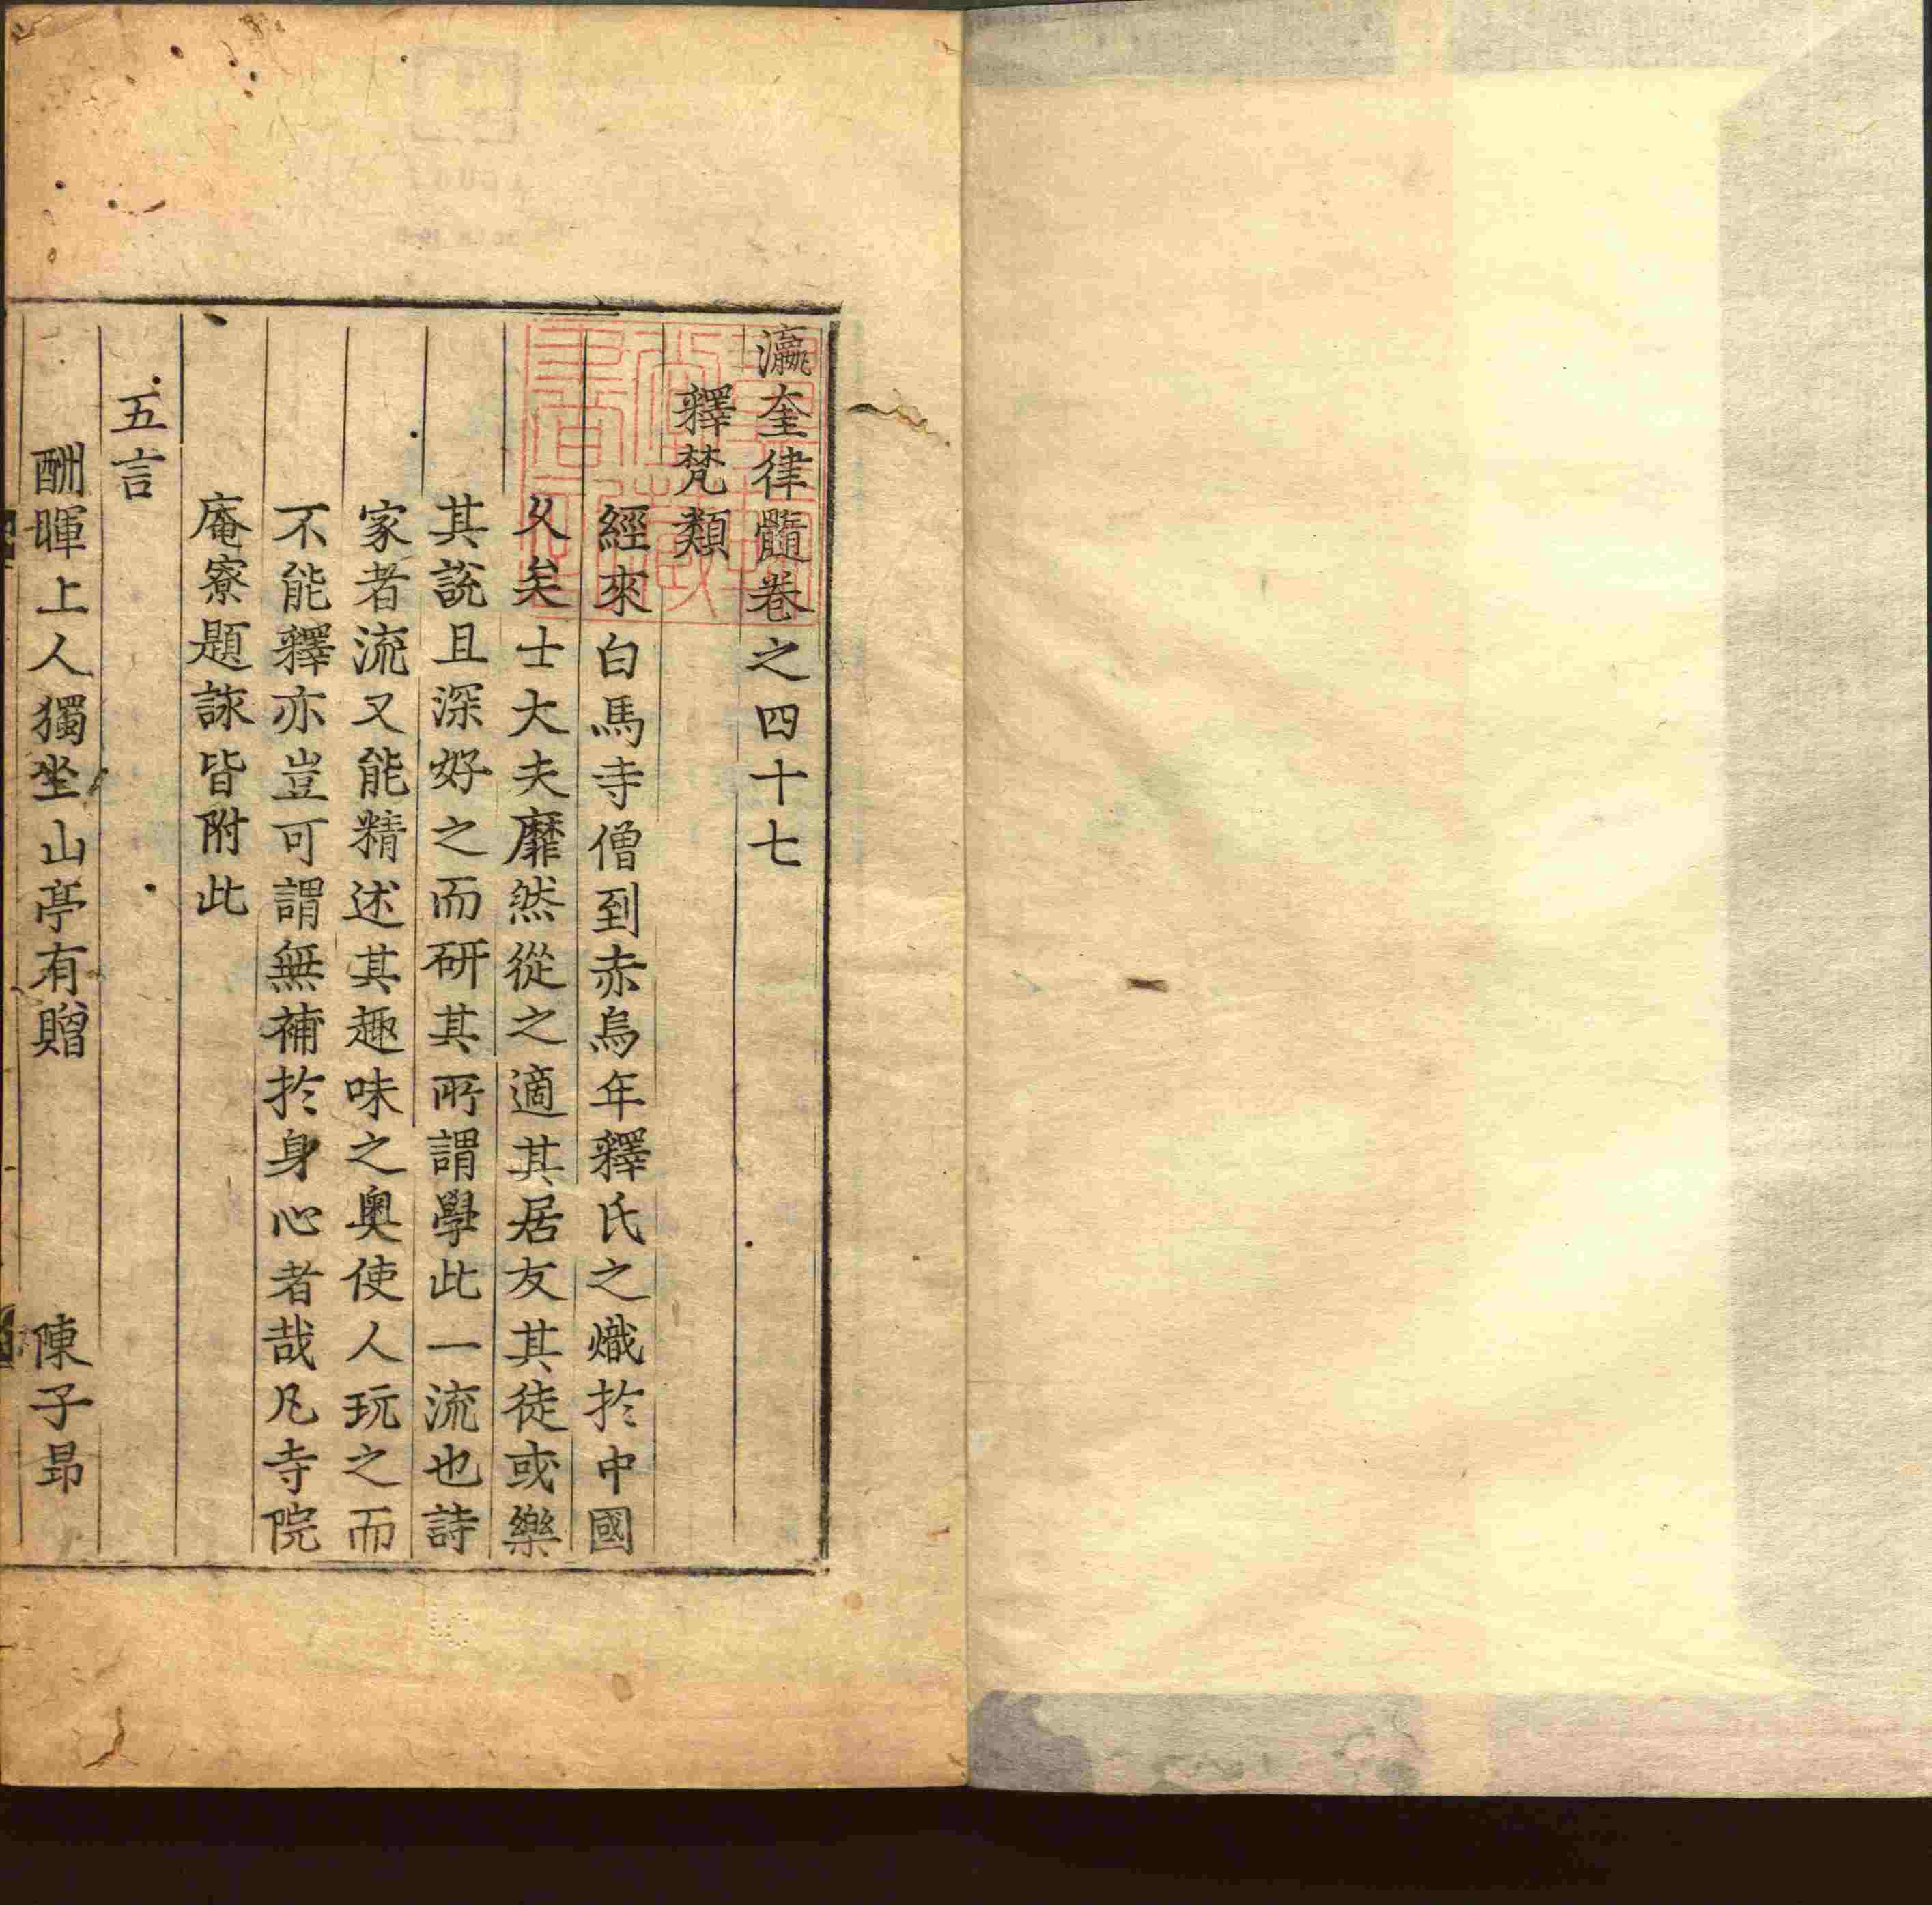 瀛奎律髓卷之四十七
釋梵類
經來白馬寺僧到赤烏年釋氏之熾於中國
久矣士大夫靡然從之適其居友其徒或樂
其說且深好之而研其所謂學此一流也詩
家者流又能精述其趣味之奧使人玩之而
不能釋亦豈可謂無補於身心者哉凡寺院
庵寮題詠皆附此
五言
酬暉上人獨坐山亭有贈 陳子昂